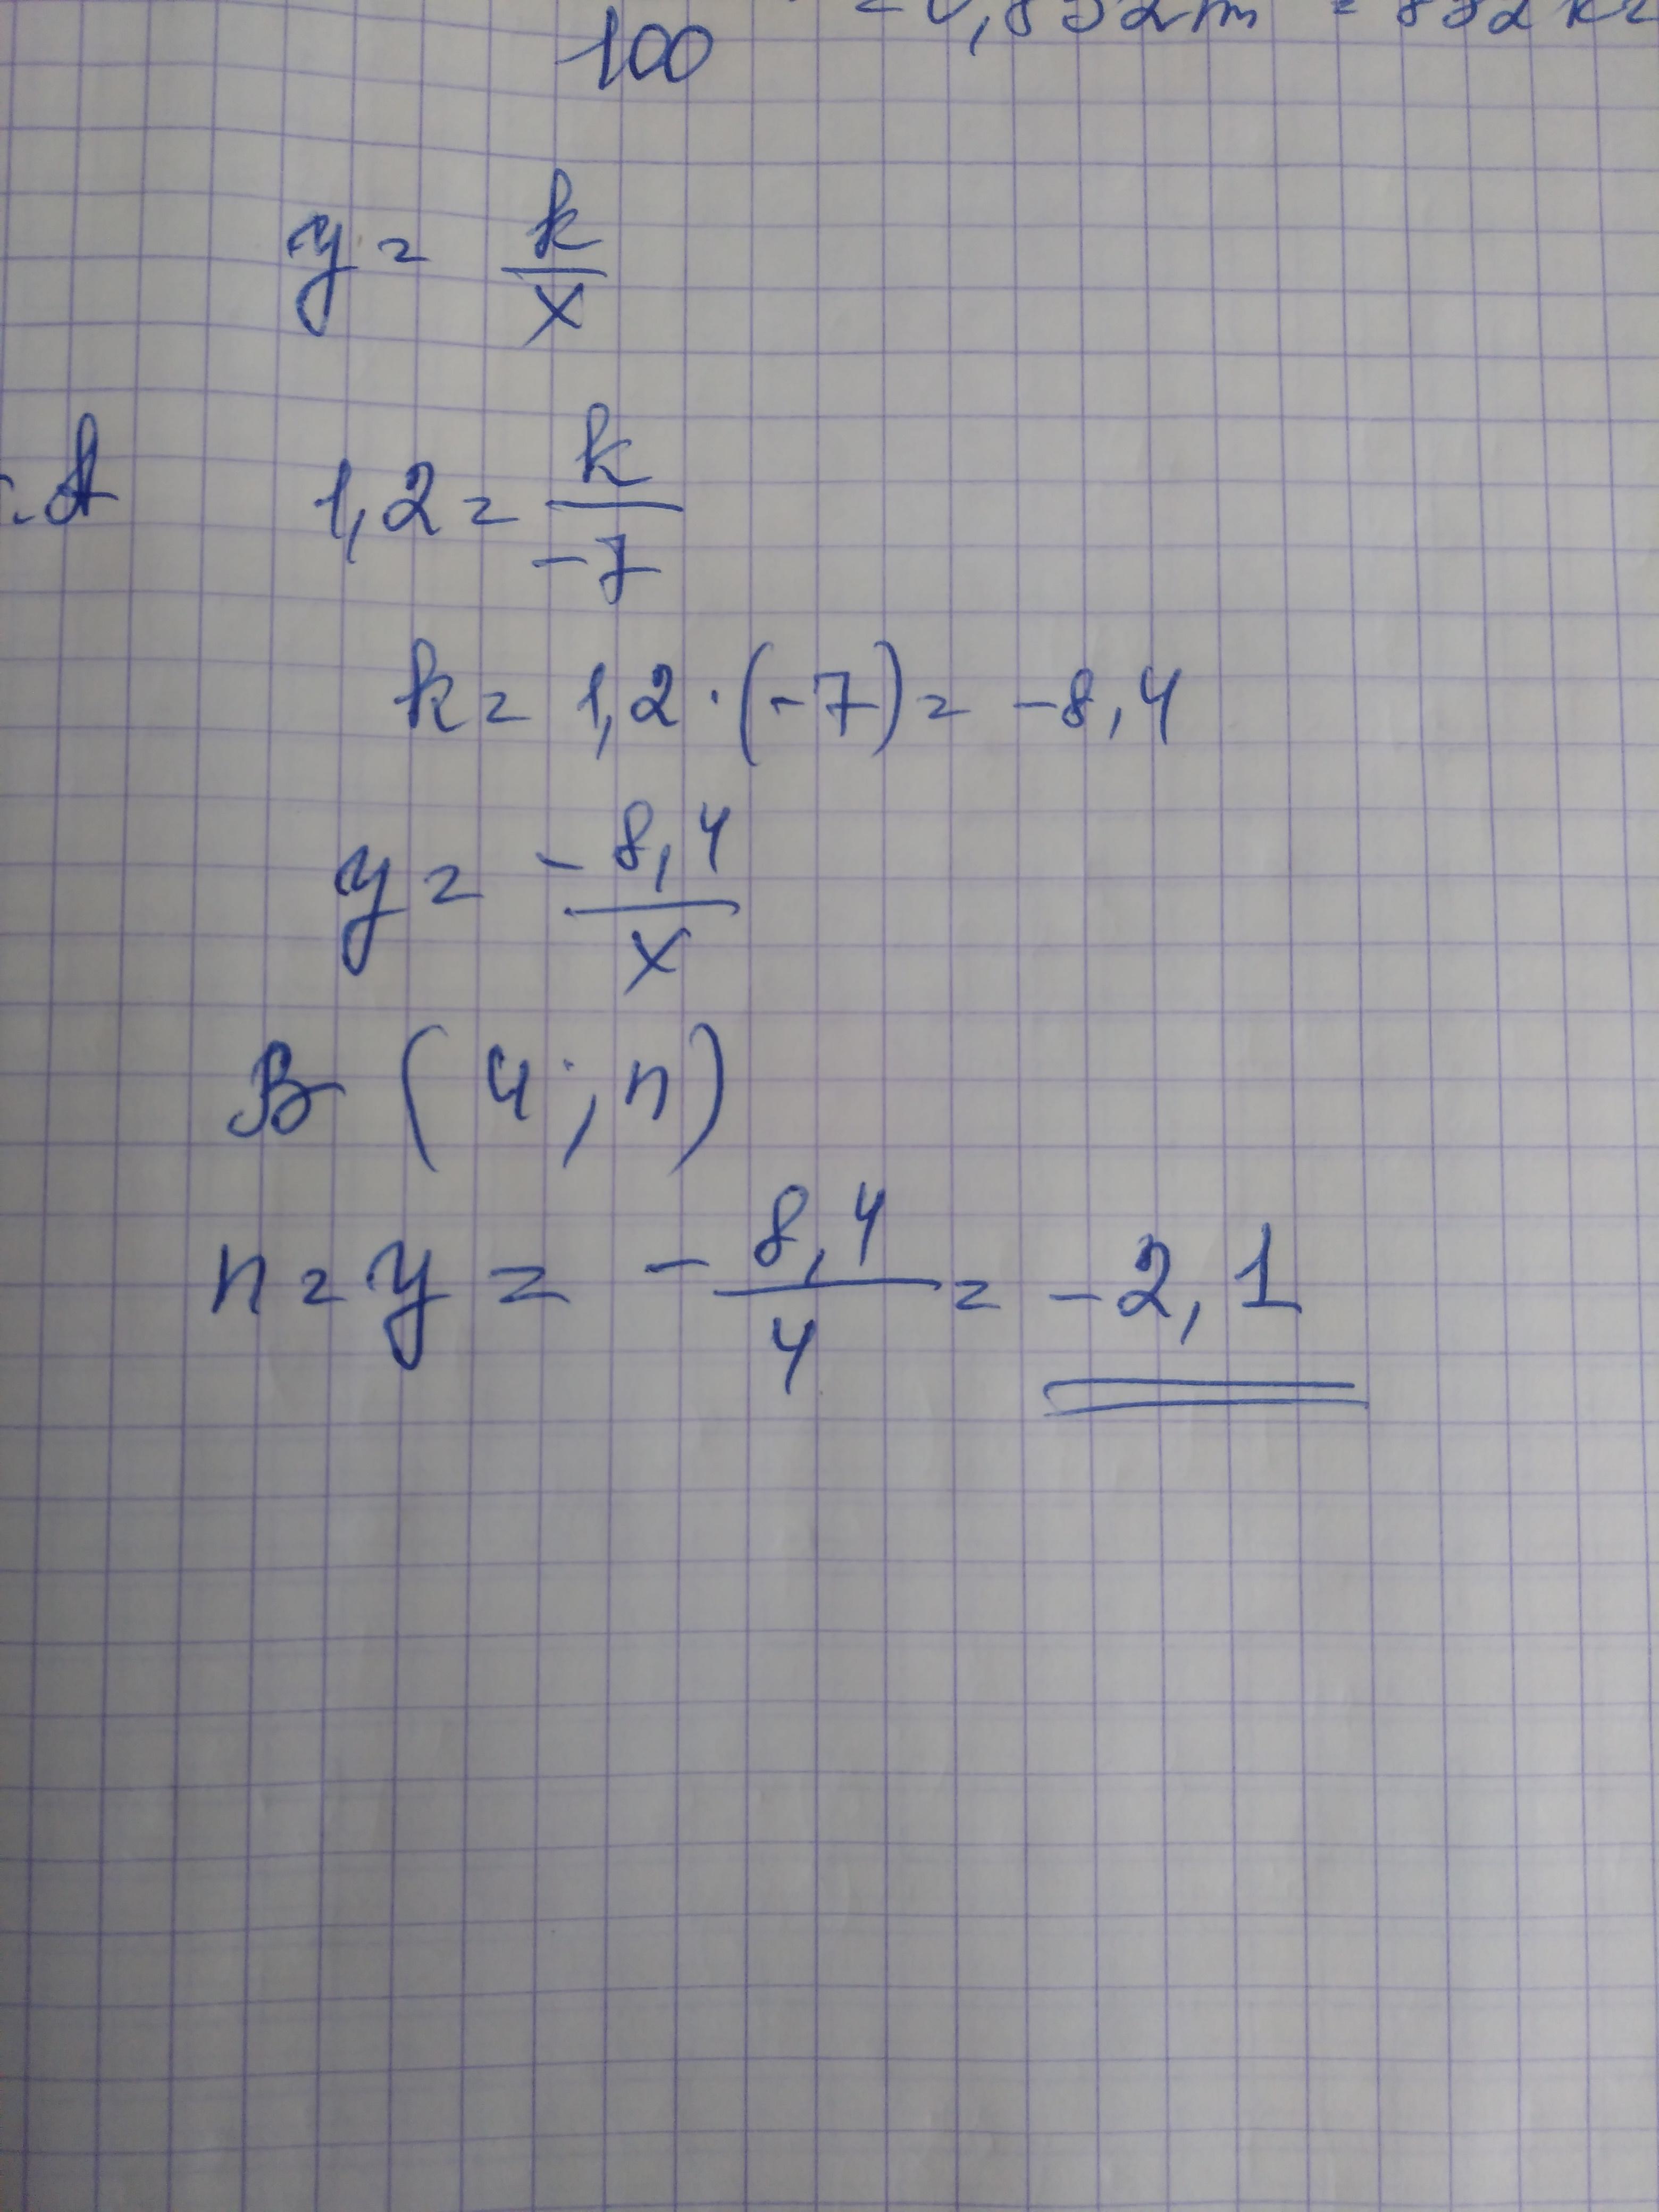 100 = 0,832т = 832 кг
y = k/x
т.A 1,2 = k/-7
k = 1,2 · (-7) = -8,4
y = -8,4/x
B (4; n)
n = y = - 8,4/4 = -2,1